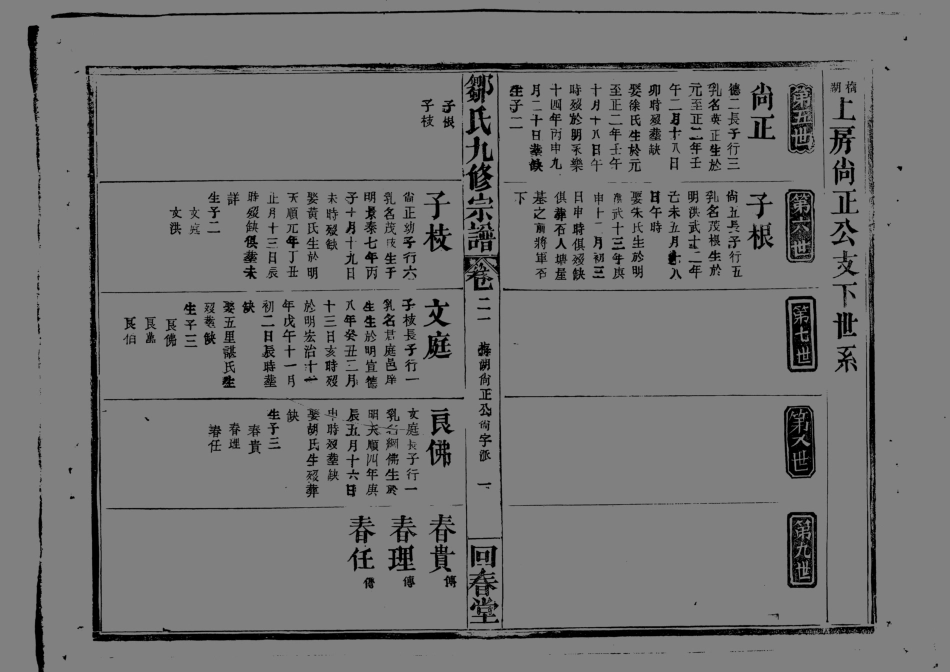 橋湖
上房尚正公支下世系
第五世
尚正
德二長子行三
乳名英正生於
元至正二年壬
午二月十八日
卯時歿塟缺
娶徐氏生於元
至正二年壬午
十月十八日午
時歿於明永樂
十四年丙申九
月二十日塟缺
生子二
子根
子枝
第六世
子根
尚五長子行五
乳名茂根生於
明洪武十二年
己未五月廿八
日午時
娶朱氏生於明
洪武十三年庚
申十二月初三
日申時俱歿缺
俱葬石人塘星
基之前將軍石
下
子枝
尚正幼子行六
乳名茂枝生于
明景泰七年丙
子十月十九日
未時歿缺
娶黃氏生於明
天順元年丁丑
正月十三日辰
時歿缺俱塟未
詳
生子二
文庭
文洪
第七世
文庭
子枝長子行一
乳名君庭邑庠
生生於明宣德
八年癸丑三月
十三日亥時歿
於明宏治十一
年戊午十一月
初二日辰時塟
缺
娶五里謀氏生
歿塟缺
生子三
良佛
良伯
第八世
良佛
文庭長子行一
乳名綱佛生於
明天順四年庚
辰五月十六日
申時歿塟缺
娶胡氏生歿葬
缺
生子三
春貴
春理
春任
第九世
春貴 傳
春理 傳
春任 傳
鄒氏九修宗譜
卷二
湖尚正公尚字派 一
回春堂